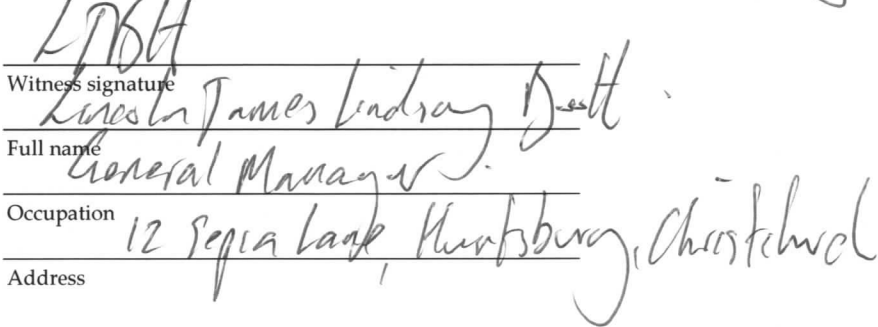 Witness signature
Lincoln James Lindsay
Full name
General Manager.
Occupation
12 Sepia Lane, Huntsbury, Christchurch
Address